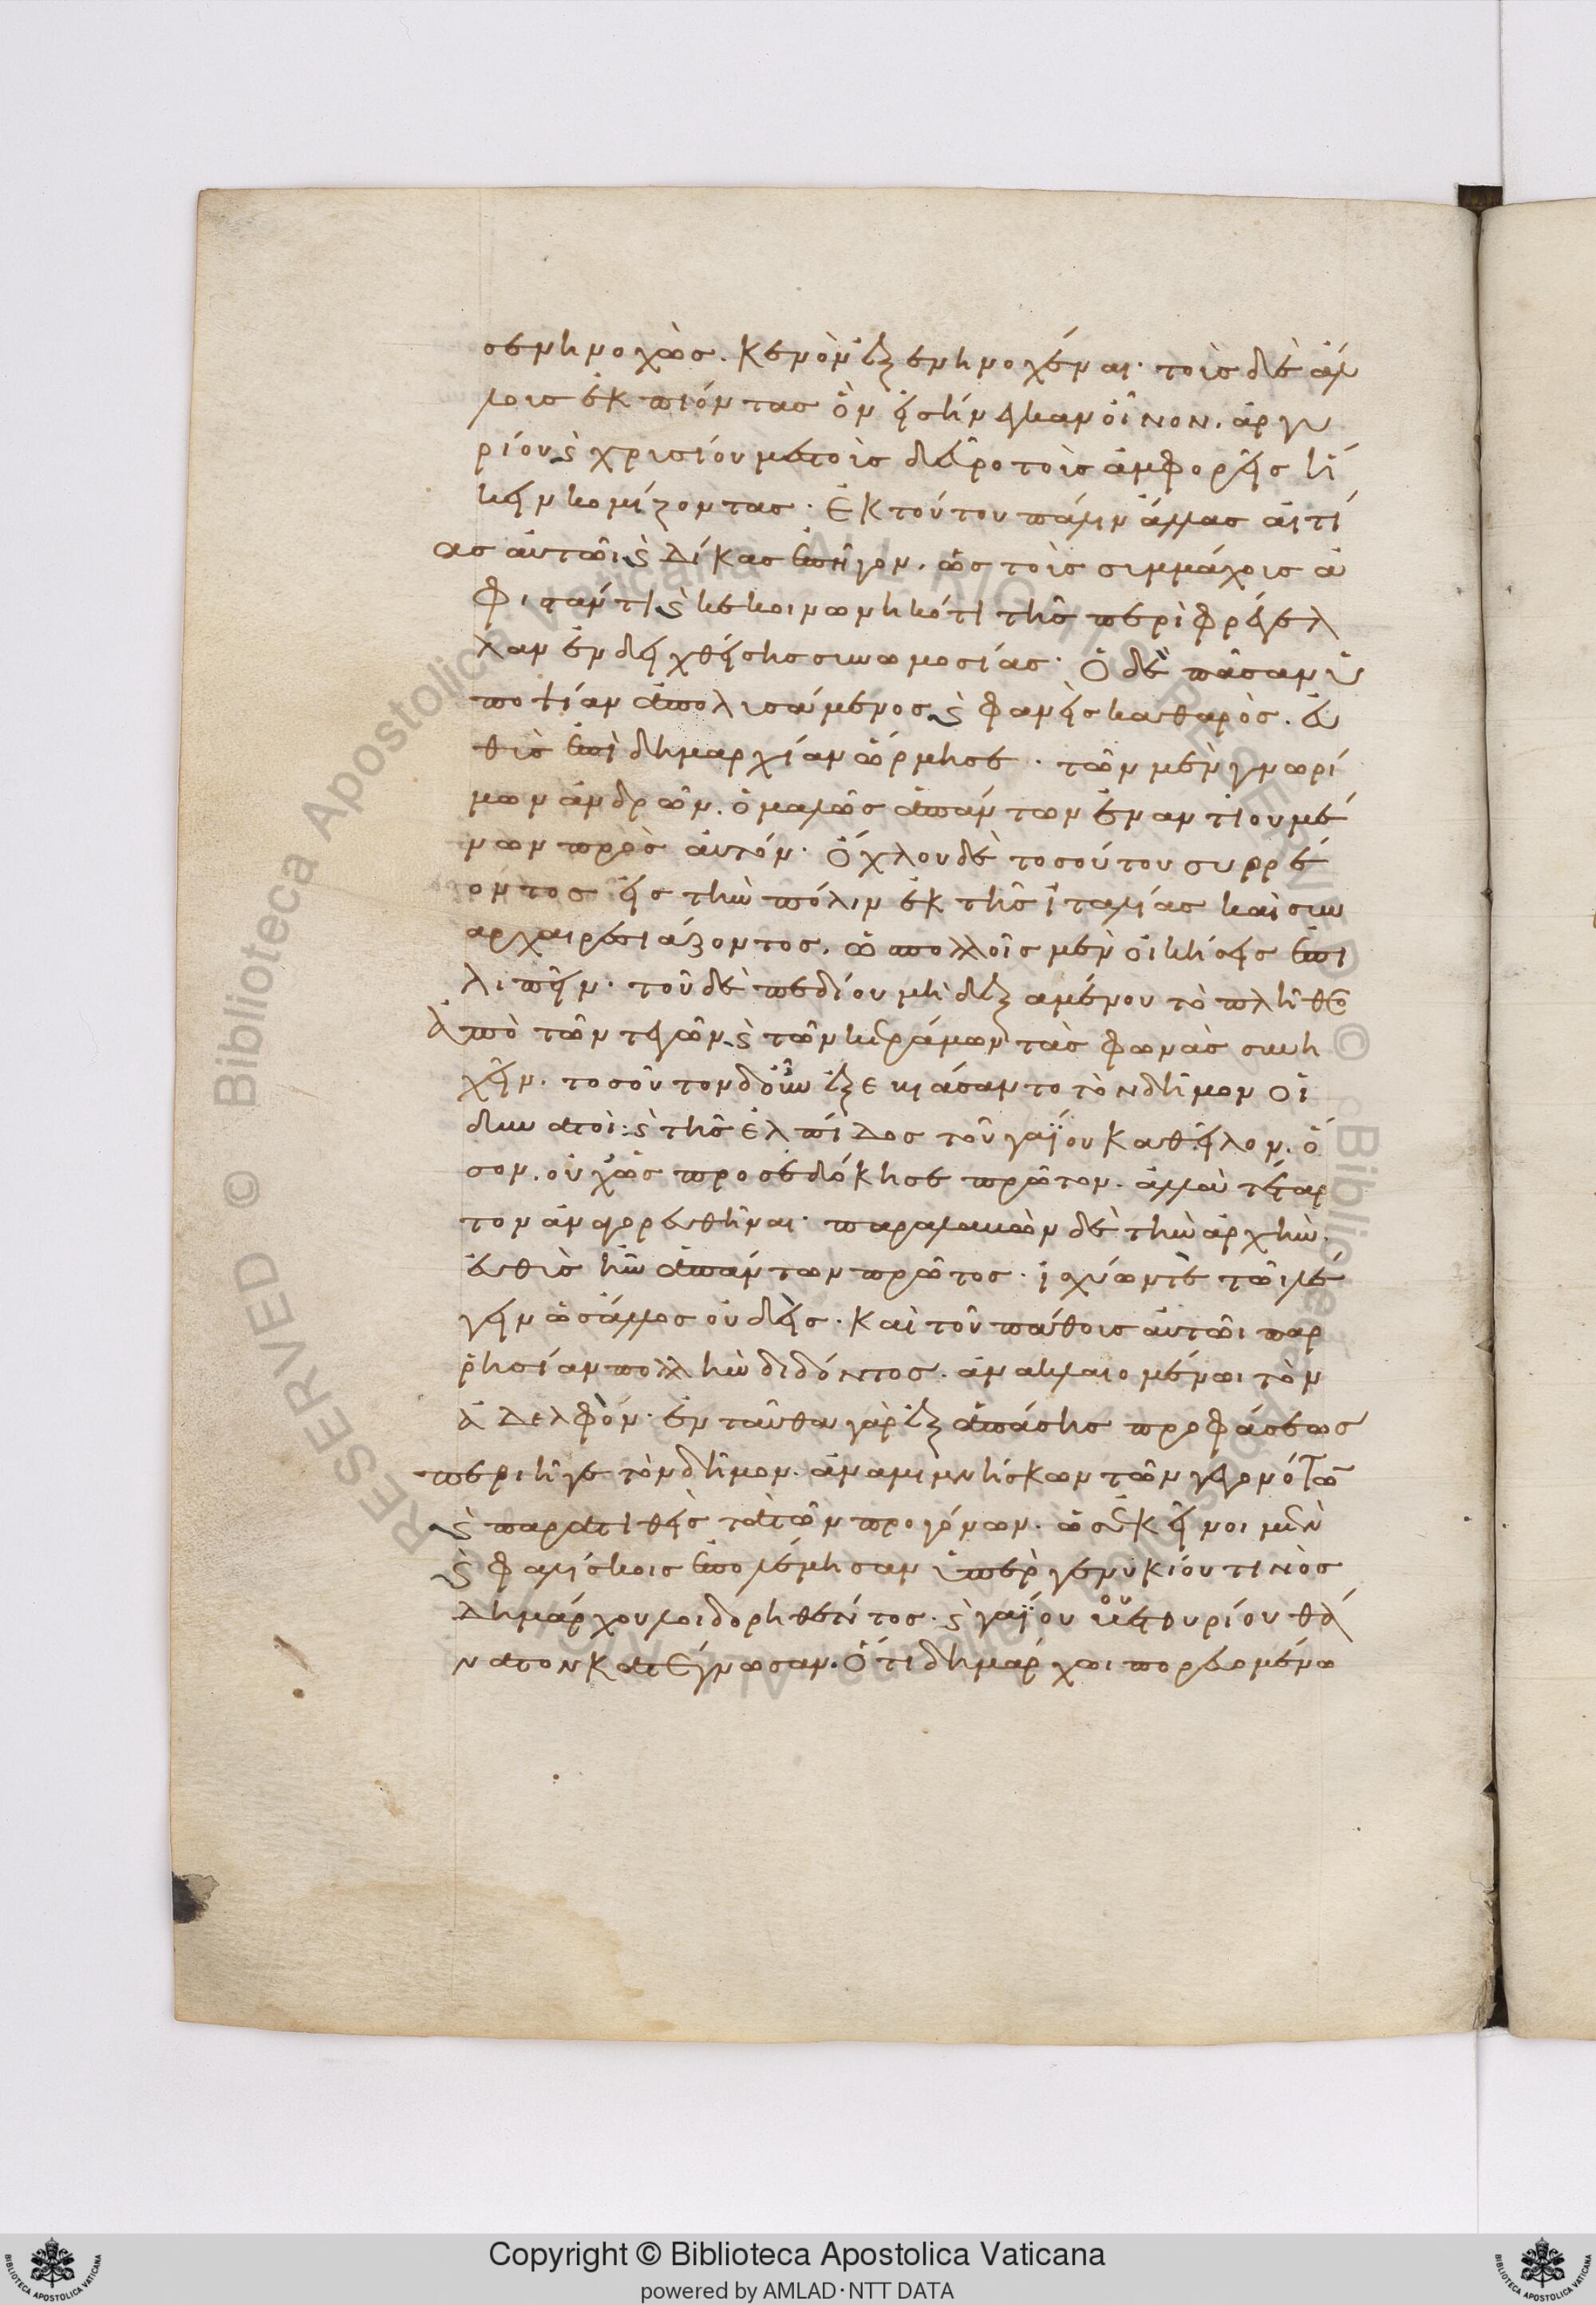 σενηνοχὼς. κενὸν ἐξενηνοχέναι· τοὺς δὲ ἄλ
λους ἐκπιόντας ὃν εἰσήνεγκαν οἶνον. ἀργυ
ρίου ϗ χρυσίου μεστοὺς δεῦρο τοὺς ἀμφορεῖς ἥ
κειν κομίζοντας· Ἐκ τούτου πάλιν ἄλλας αἰτί
ας αὐτῶι ϗ Δίκας ἐπῆγον. ὡς τοὺς συμμάχους ἀ
φιστάντι ϗ κεκοινωνηκότι τῆς περὶ φρέγελ
λαν ἐνδειχθείσης συνωμοσίας· Ὁ δὲ πᾶσαν ὑ
ποψίαν ἀπολυσάμενος ϗ φανεὶς καθαρὸς. εὐ
θὺς ἐπὶ δημαρχίαν ὥρμησε. τῶν μὲν γνωρί
μων ἀνδρῶν. ὁμαλῶς ἁπάντων ἐναντιουμέ
νων πρὸς αὐτόν· Ὄχλου δὲ τοσούτου συρρέ
οντος εἰς τὴν πόλιν ἐκ τῆς ἰταλίας καὶ συν
αρχαιρεσιάζοντος. ὡ πολλοῖς μὲν οἰκήσεις ἐπι
λιπεῖν· τοῦ δὲ πεδίου μὴ δεξαμένου τὸ πλῆθος
Ἀπὸ τῶν τεγῶν ϗ τῶν κεράμων τὰς φωνὰς συνη
χεῖν. τοσοῦτον δ' οὖν ἐξεβιάσαντο τὸν δῆμον οἱ
δυνατοὶ: ϗ τῆς ἐλπίδος τοῦ γαΐου καθεῖλον. ὅ
σον. οὐχ ὡς προσεδόκησε πρῶτον. ἀλλὰ τέταρ
τον ἀναγορευθῆναι· παραλαβὼν δὲ τὴν ἀρχὴν.
εὐθὺς ἦν ἁπάντων πρῶτος. ἰσχύων τε τῶι λέ
γειν ὡς ἄλλος οὐδεὶς. Καὶ τοῦ πάθους αὐτῶι παρ
ρησίαν πολλὴν διδόντος. ἀνακλαιομένωι τὸν
ἀδελφόν. ἐνταῦθα γὰρ ἐξ ἁπάσης προφάσεως
περιῆγε τὸν δῆμον. ἀναμιμνήσκων τῶν γεγονότων
ϗ παρατιθεὶς τὰ τῶν προγόνων. ὡς ἐκεῖνοι μὲν
ϗ φαλίσκοις ἐπολέμησαν ὑπὲρ γενυκίου τινὸς
Δημάρχου λοιδορηθέντος. ϗ γαΐου βετουρίου θά
νατον κατέγνωσαν. Ὅτι δημάρχωι πορευομένω